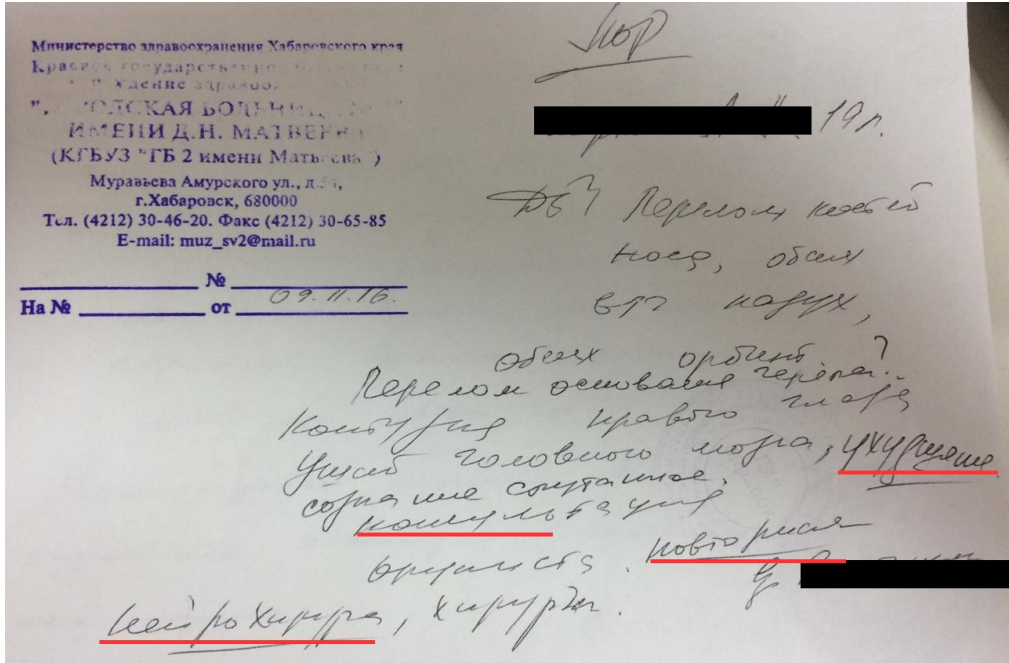 Министерство здравоохранения Хабаровского края
Краевое государственное
здраво
ДСКАЯ БОЛЬНИЦ
ИМЕНИ Д.Н. МАТВЕЕВА
(КГБУЗ "ГБ 2 имени Матвеева")
Муравьева Амурского ул., д.54,
г.Хабаровск, 680000
Тел. (4212) 30-46-20. Факс (4212) 30-65-85
E-mail: muz_sv2@mail.ru
№
На № от 09.11.16.
ЛОР
19 л.
Ds? Перелом костей
носа, обеих
в/ч пазух,
обеих орбит?
Перелом основания черепа?
Контузия правого глаза
Ушиб головного мозга, ухудшение
сознание спутанное.
консультация
окулиста. повторная
нейрохирурга, хирурга.